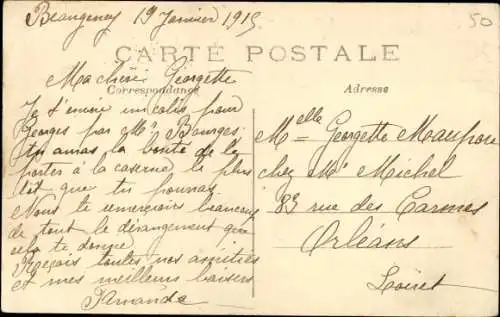 Beaugency 19 Janvier 1915
50
CARTE POSTALE
Ma chère Georgette
Correspondance
Adresse
Je t'envoie un colis pour
Georges par Mr Bourges
tu auras la bonté de le
porter à la caserne le plus
tôt que tu pourras
Nous te remercions beaucoup
de tout le dérangement que
cela te donne
Reçois toutes nos amitiés
et mes meilleurs baisers
Amanda
Melle Georgette
chez Mr Michel
83 rue des Carmes
Orléans
Loiret